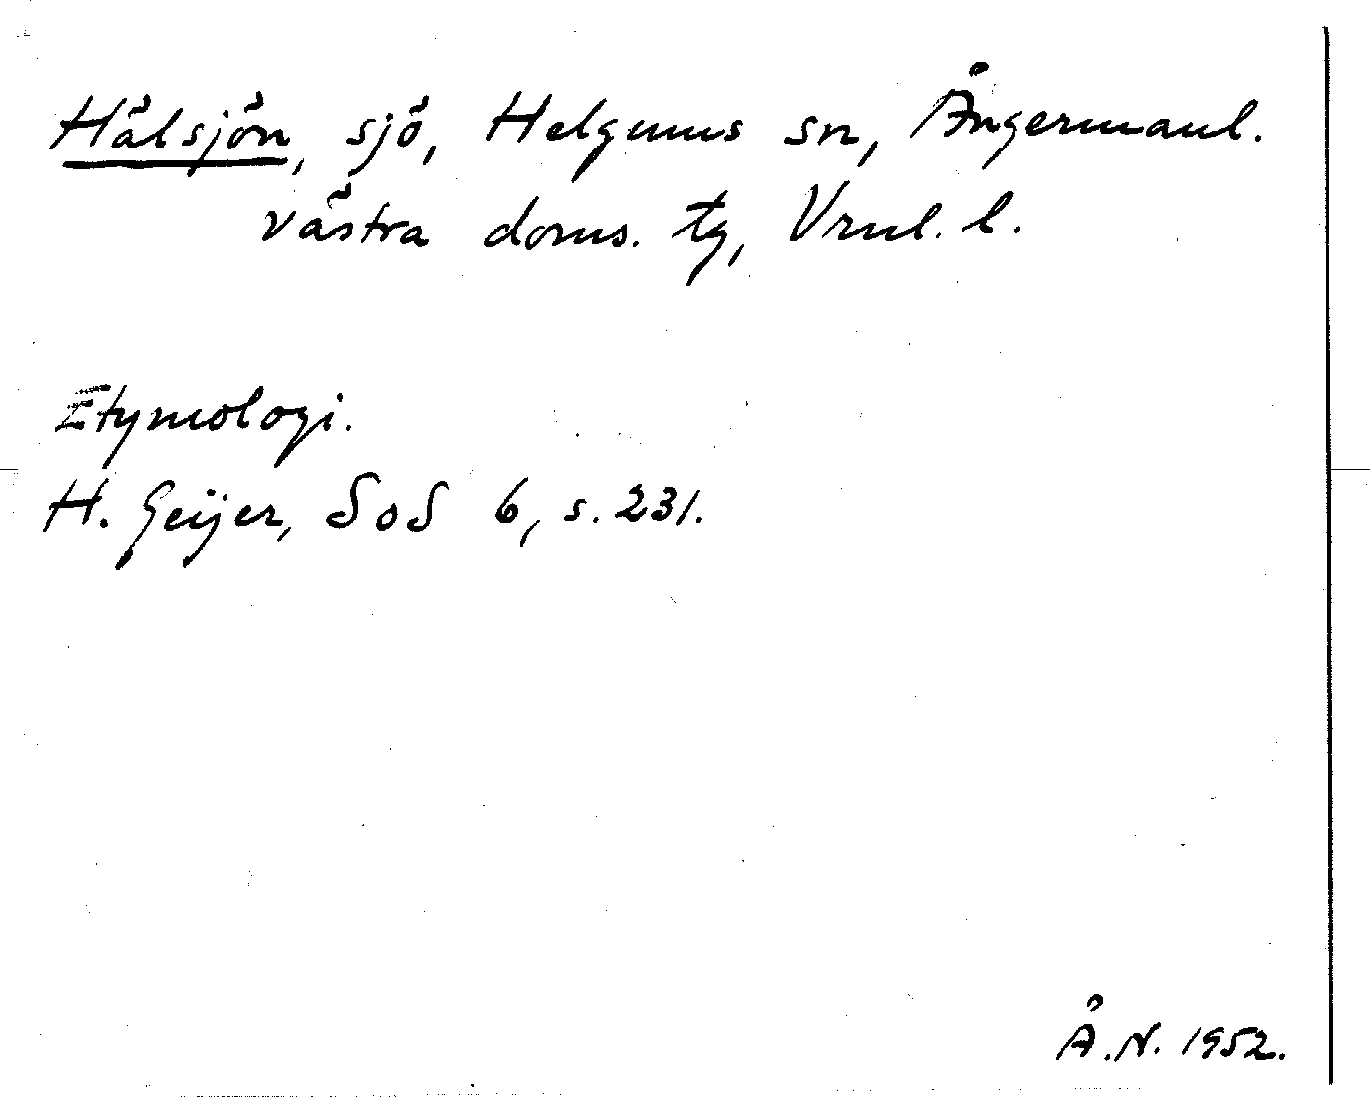 Hälsjön, sjö, Helgums sn, Ångermanl.
västra doms. tg, Vrnl. l.
Etymologi.
H. Geijer, SoS 6, s. 231.
Å.N. 1952.